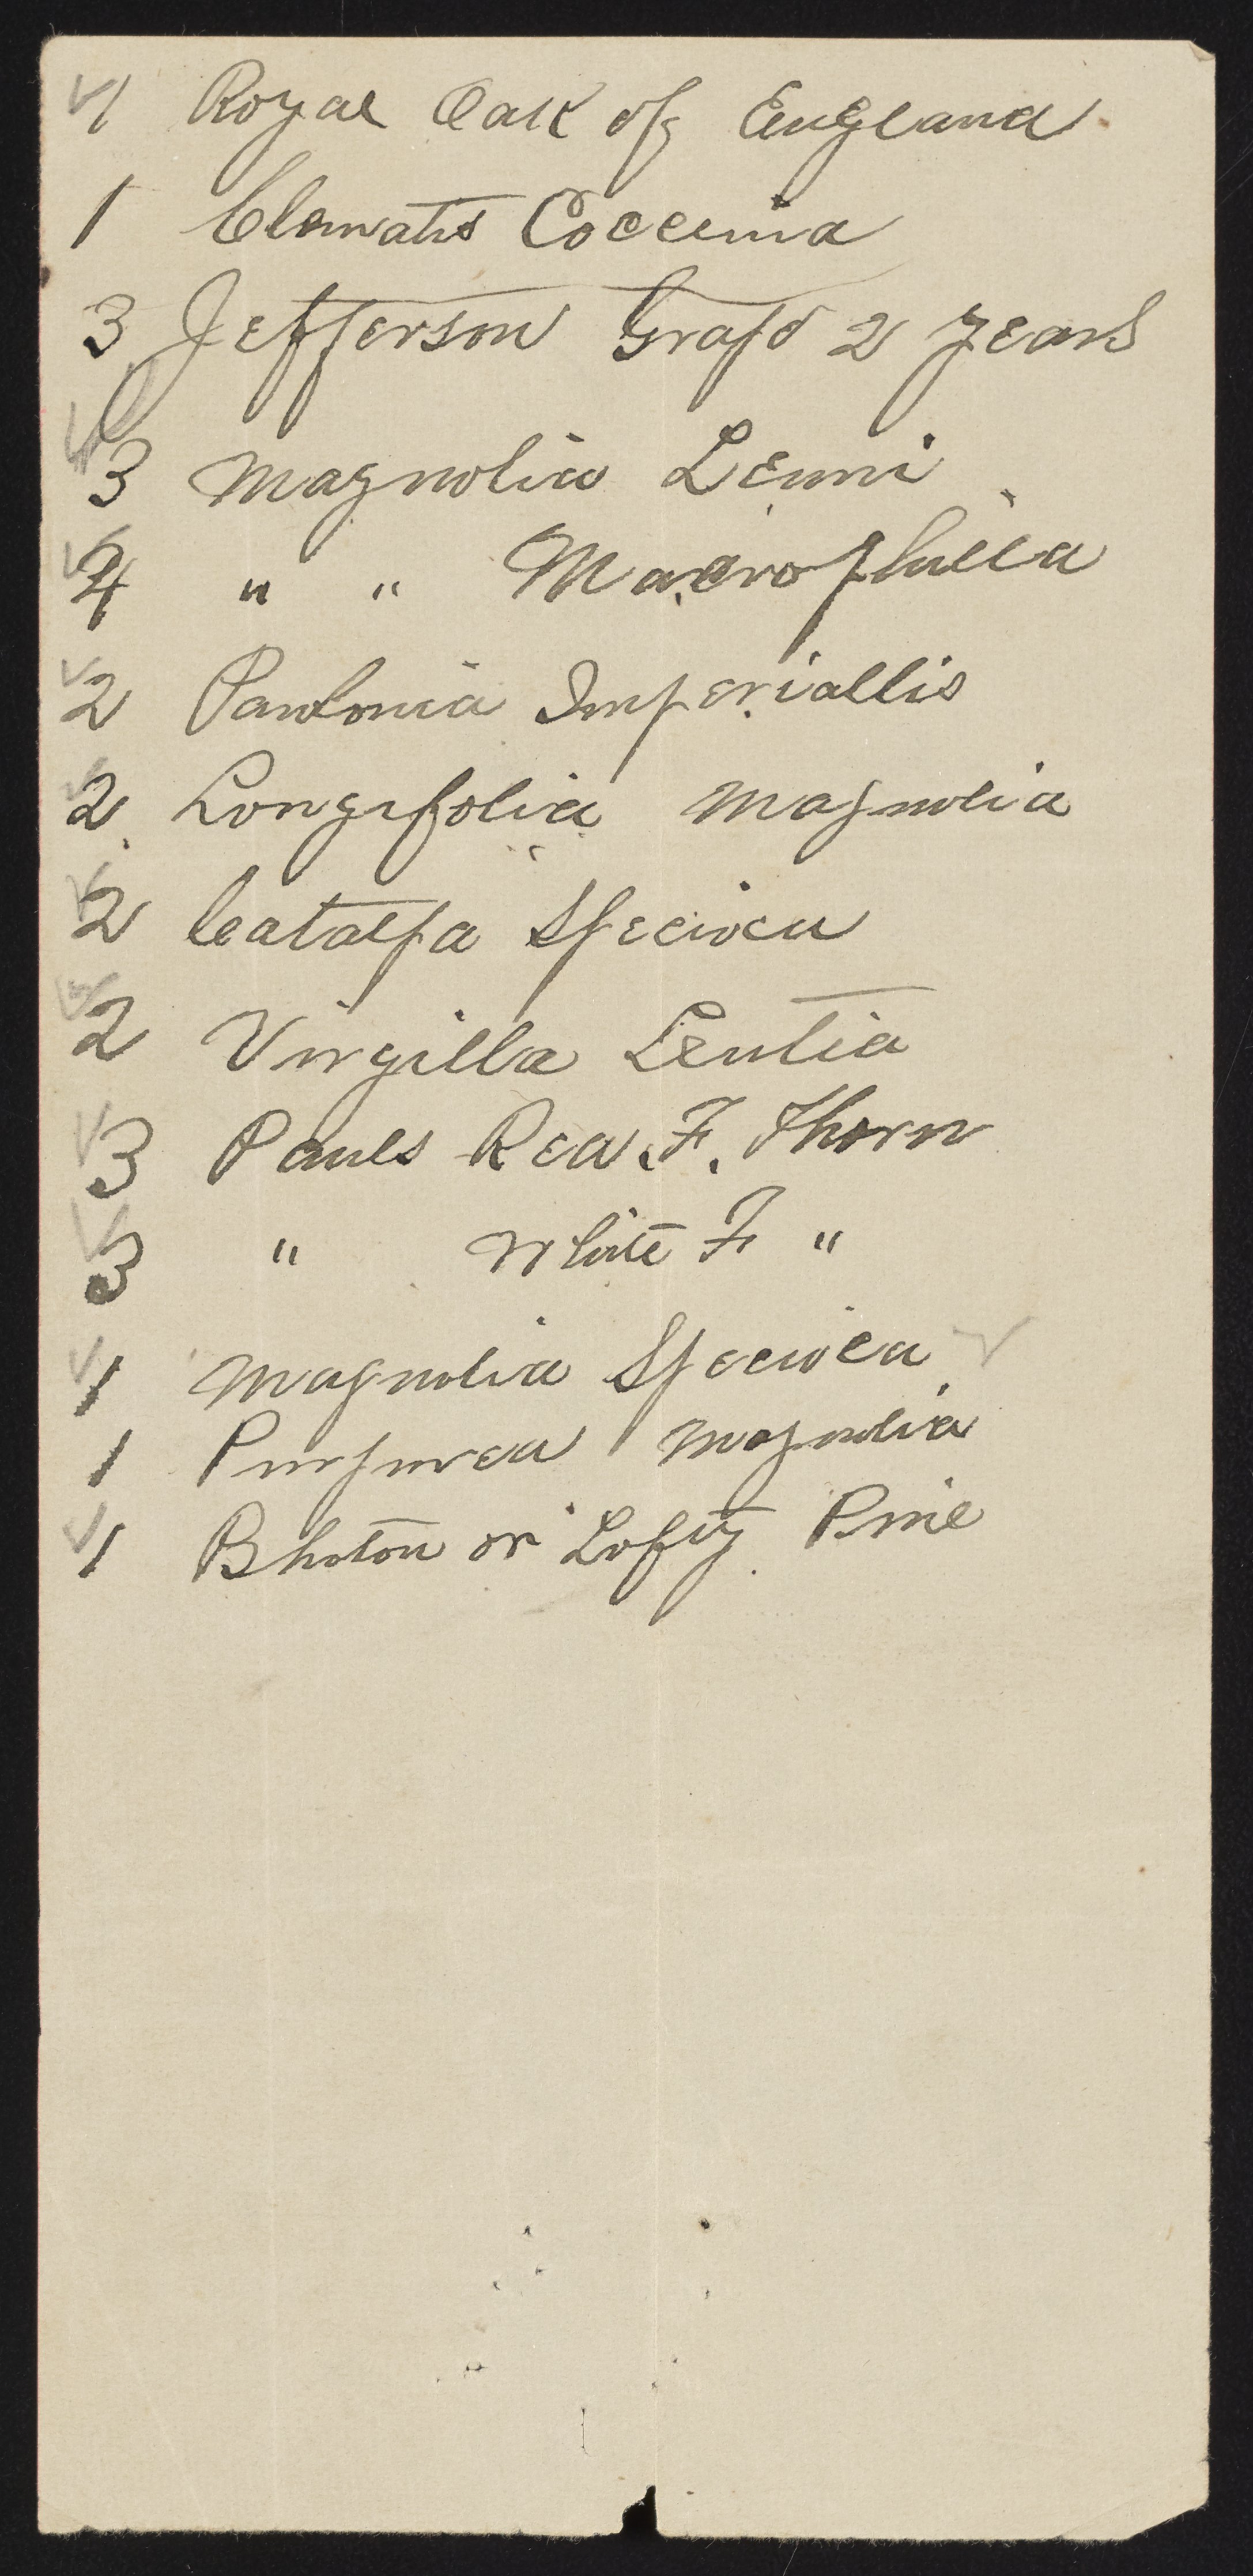 ✓ 1 Royal Oak of England
1 Clematis Coccinia
3 Jefferson Graps 2 years
✓ 3 Magnolia Lenni
✓ 4 " " Macrophilla
✓ 2 Panlonia Imperiallis
✓ 2 Longifolia Magnolia
✓ 2 Catalpa Speciocu
✓ 2 Virgilla Lentia
✓ 3 Pauls Read. F. Thorn
✓ 3 " White F "
✓ 1 Magnolia Specioca ✓
1 Purpurea Magnolia
✓ 1 Bhotan or Lofty Pine